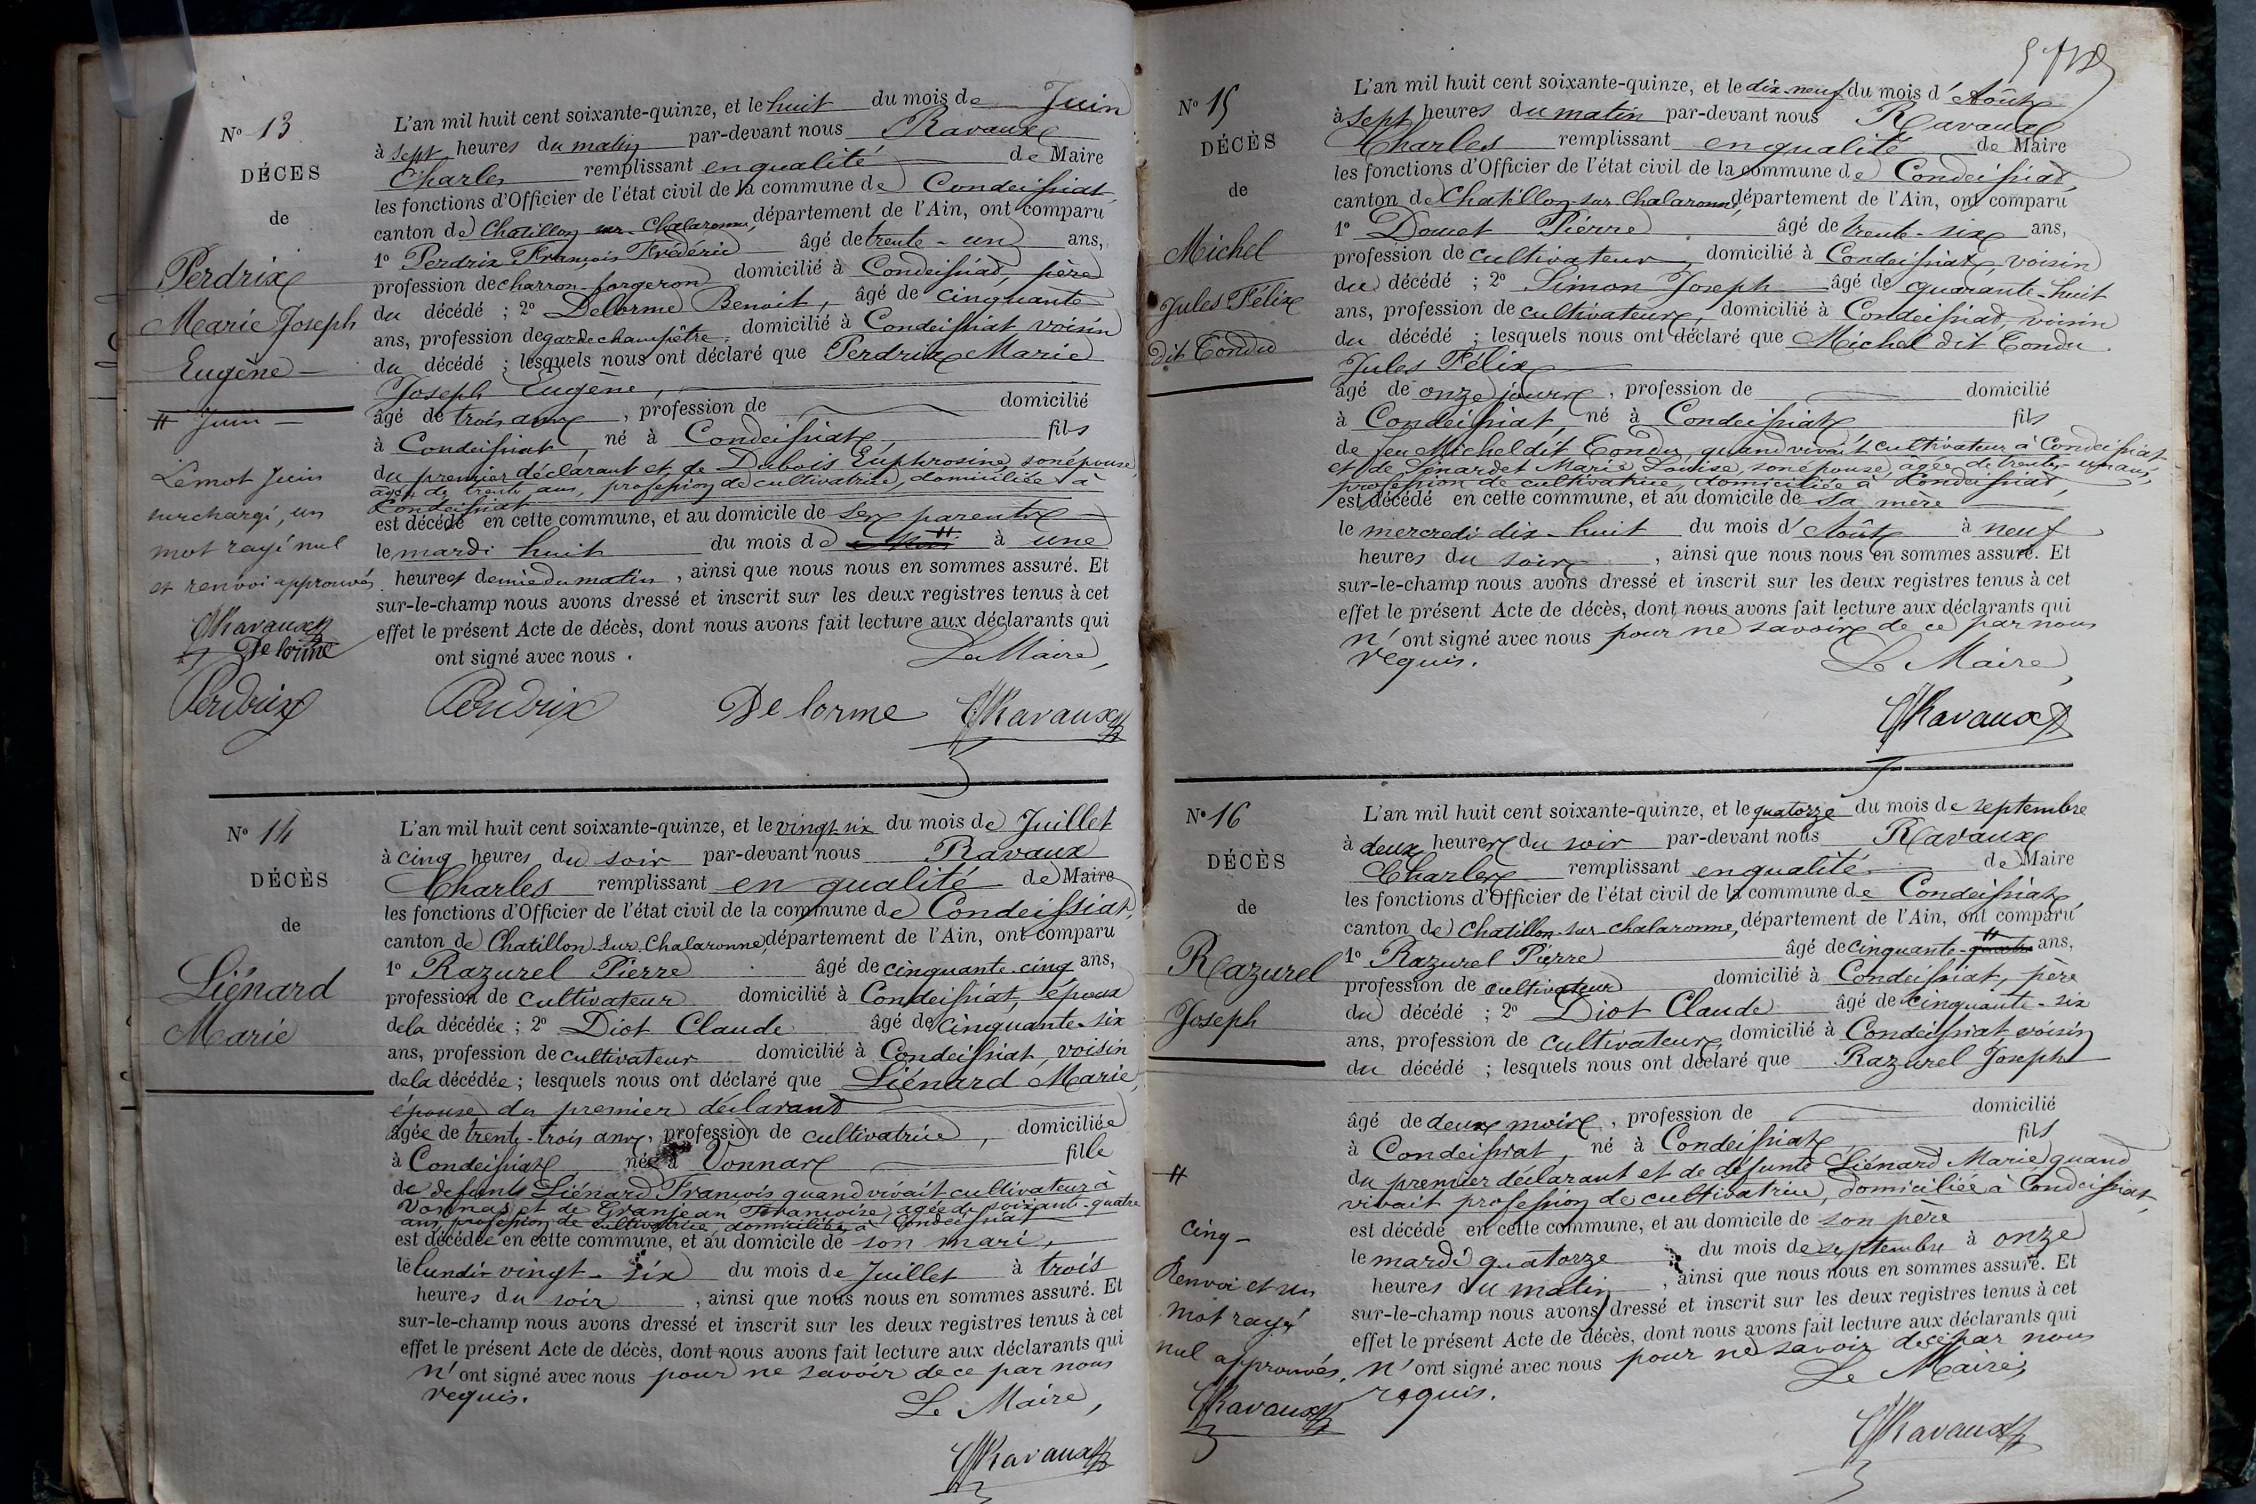 N° 13
DÉCES
de
Perdrix
Marie Joseph
Eugène
# Juin
Le mot Juin
surchargé, un
mot rayé nul
et renvoi approuvés
Ravaux
Delorme
Perdrix
L'an mil huit cent soixante-quinze, et le huit du mois de Juin
à sept heures du matin par-devant nous Ravaux
Charles remplissant en qualité de Maire
les fonctions d'Officier de l'état civil de la commune de Condeissiat,
canton de Chatillon sur Chalaronne, département de l'Ain, ont comparu
1° Perdrix François Frédéric âgé de trente-un ans,
profession de charron-forgeron domicilié à Condeissiat, père
du décédé ; 2° Delorme Benoit, âgé de cinquante
ans, profession de garde champêtre, domicilié à Condeissiat voisin
du décédé ; lesquels nous ont déclaré que Perdrix Marie
Joseph Eugène,
âgé de trois ans, profession de domicilié
à Condeissiat, né à Condeissiat, fils
du premier déclarant et de Dubois Euphrosine, son épouse,
âgée de trente ans, profession de cultivatrice, domiciliée à
Condeissiat
est décédé en cette commune, et au domicile de ses parents
le mardi huit du mois de # à une
heure et demie du matin, ainsi que nous nous en sommes assuré. Et
sur-le-champ nous avons dressé et inscrit sur les deux registres tenus à cet
effet le présent Acte de décès, dont nous avons fait lecture aux déclarants qui
ont signé avec nous.
Le Maire,
Perdrix Delorme Ravaux
N° 14
DÉCÈS
de
Liénard
Marie
L'an mil huit cent soixante-quinze, et le vingt six du mois de Juillet
à cinq heures du soir par-devant nous Ravaux
Charles remplissant en qualité de Maire
les fonctions d'Officier de l'état civil de la commune de Condeissiat,
canton de Chatillon sur Chalaronne, département de l'Ain, ont comparu
1° Razurel Pierre âgé de cinquante cinq ans,
profession de cultivateur domicilié à Condeissiat, époux
de la décédée ; 2° Diot Claude âgé de cinquante-six
ans, profession de cultivateur domicilié à Condeissiat, voisin
de la décédée ; lesquels nous ont déclaré que Liénard Marie,
épouse du premier déclarant
âgée de trente-trois ans, profession de cultivatrice, domiciliée
à Condeissiat, née à Vonnas fille
de défunts Liénard François quand vivait cultivateur à
Vonnas et de Granjean Françoise, agée de soixante-quatre
ans, profession de cultivatrice, domiciliée à Condeissiat
est décédée en cette commune, et au domicile de son mari,
le lundi vingt-six du mois de Juillet à trois
heures du soir, ainsi que nous nous en sommes assuré. Et
sur-le-champ nous avons dressé et inscrit sur les deux registres tenus à cet
effet le présent Acte de décès, dont nous avons fait lecture aux déclarants qui
n'ont signé avec nous pour ne savoir de ce par nous
requis.
Le Maire,
Ravaux
N° 15
DÉCÈS
de
Michel
Jules Félix
dit Tondu
L'an mil huit cent soixante-quinze, et le dix-neuf du mois d'Août
à sept heures du matin par-devant nous Ravaux
Charles remplissant en qualité de Maire
les fonctions d'Officier de l'état civil de la commune de Condeissiat,
canton de Chatillon-sur-Chalaronne, département de l'Ain, ont comparu
1° Douet Pierre âgé de trente-six ans,
profession de cultivateur, domicilié à Condeissiat, voisin
du décédé ; 2° Simon Joseph âgé de quarante-huit
ans, profession de cultivateur, domicilié à Condeissiat voisin
du décédé ; lesquels nous ont déclaré que Michel dit Tondu
Jules Félix
âgé de onze jours, profession de domicilié
à Condeissiat, né à Condeissiat, fils
de feu Michel dit Tondu, quand vivait cultivateur à Condeissiat
et de Lenardet Marie Louise, son épouse, agée de trente-un ans,
profession de cultivatrice, domiciliée à Condeissiat,
est décédé en cette commune, et au domicile de sa mère
le mercredi dix-huit du mois d'Août à neuf
heures du soir, ainsi que nous nous en sommes assuré. Et
sur-le-champ nous avons dressé et inscrit sur les deux registres tenus à cet
effet le présent Acte de décès, dont nous avons fait lecture aux déclarants qui
n'ont signé avec nous pour ne savoir de ce par nous
requis.
Le Maire,
Ravaux
N° 16
DÉCÈS
de
Razurel
Joseph
#
cinq-
Renvoi et un
mot rayé
nul approuvés.
Ravaux
L'an mil huit cent soixante-quinze, et le quatorze du mois de septembre
à deux heures du soir par-devant nous Ravaux
Charles remplissant en qualité de Maire
les fonctions d'Officier de l'état civil de la commune de Condeissiat,
canton de Chatillon-sur-chalaronne, département de l'Ain, ont comparu
1° Razurel Pierre âgé de cinquante-quatre # ans,
profession de cultivateur domicilié à Condeissiat, père
du décédé ; 2° Diot Claude âgé de cinquante-six
ans, profession de cultivateur, domicilié à Condeissiat, voisin
du décédé ; lesquels nous ont déclaré que Razurel Joseph
âgé de deux mois, profession de domicilié
à Condeissiat, né à Condeissiat fils
du premier déclarant et de défunte Liénard Marie quand
vivait profession de cultivatrice, domiciliée à Condeissiat,
est décédé en cette commune, et au domicile de son père
le mardi quatorze du mois de septembre à onze
heures du matin, ainsi que nous nous en sommes assuré. Et
sur-le-champ nous avons dressé et inscrit sur les deux registres tenus à cet
effet le présent Acte de décès, dont nous avons fait lecture aux déclarants qui
n'ont signé avec nous pour ne savoir de ce par nous
requis.
Le Maire,
Ravaux